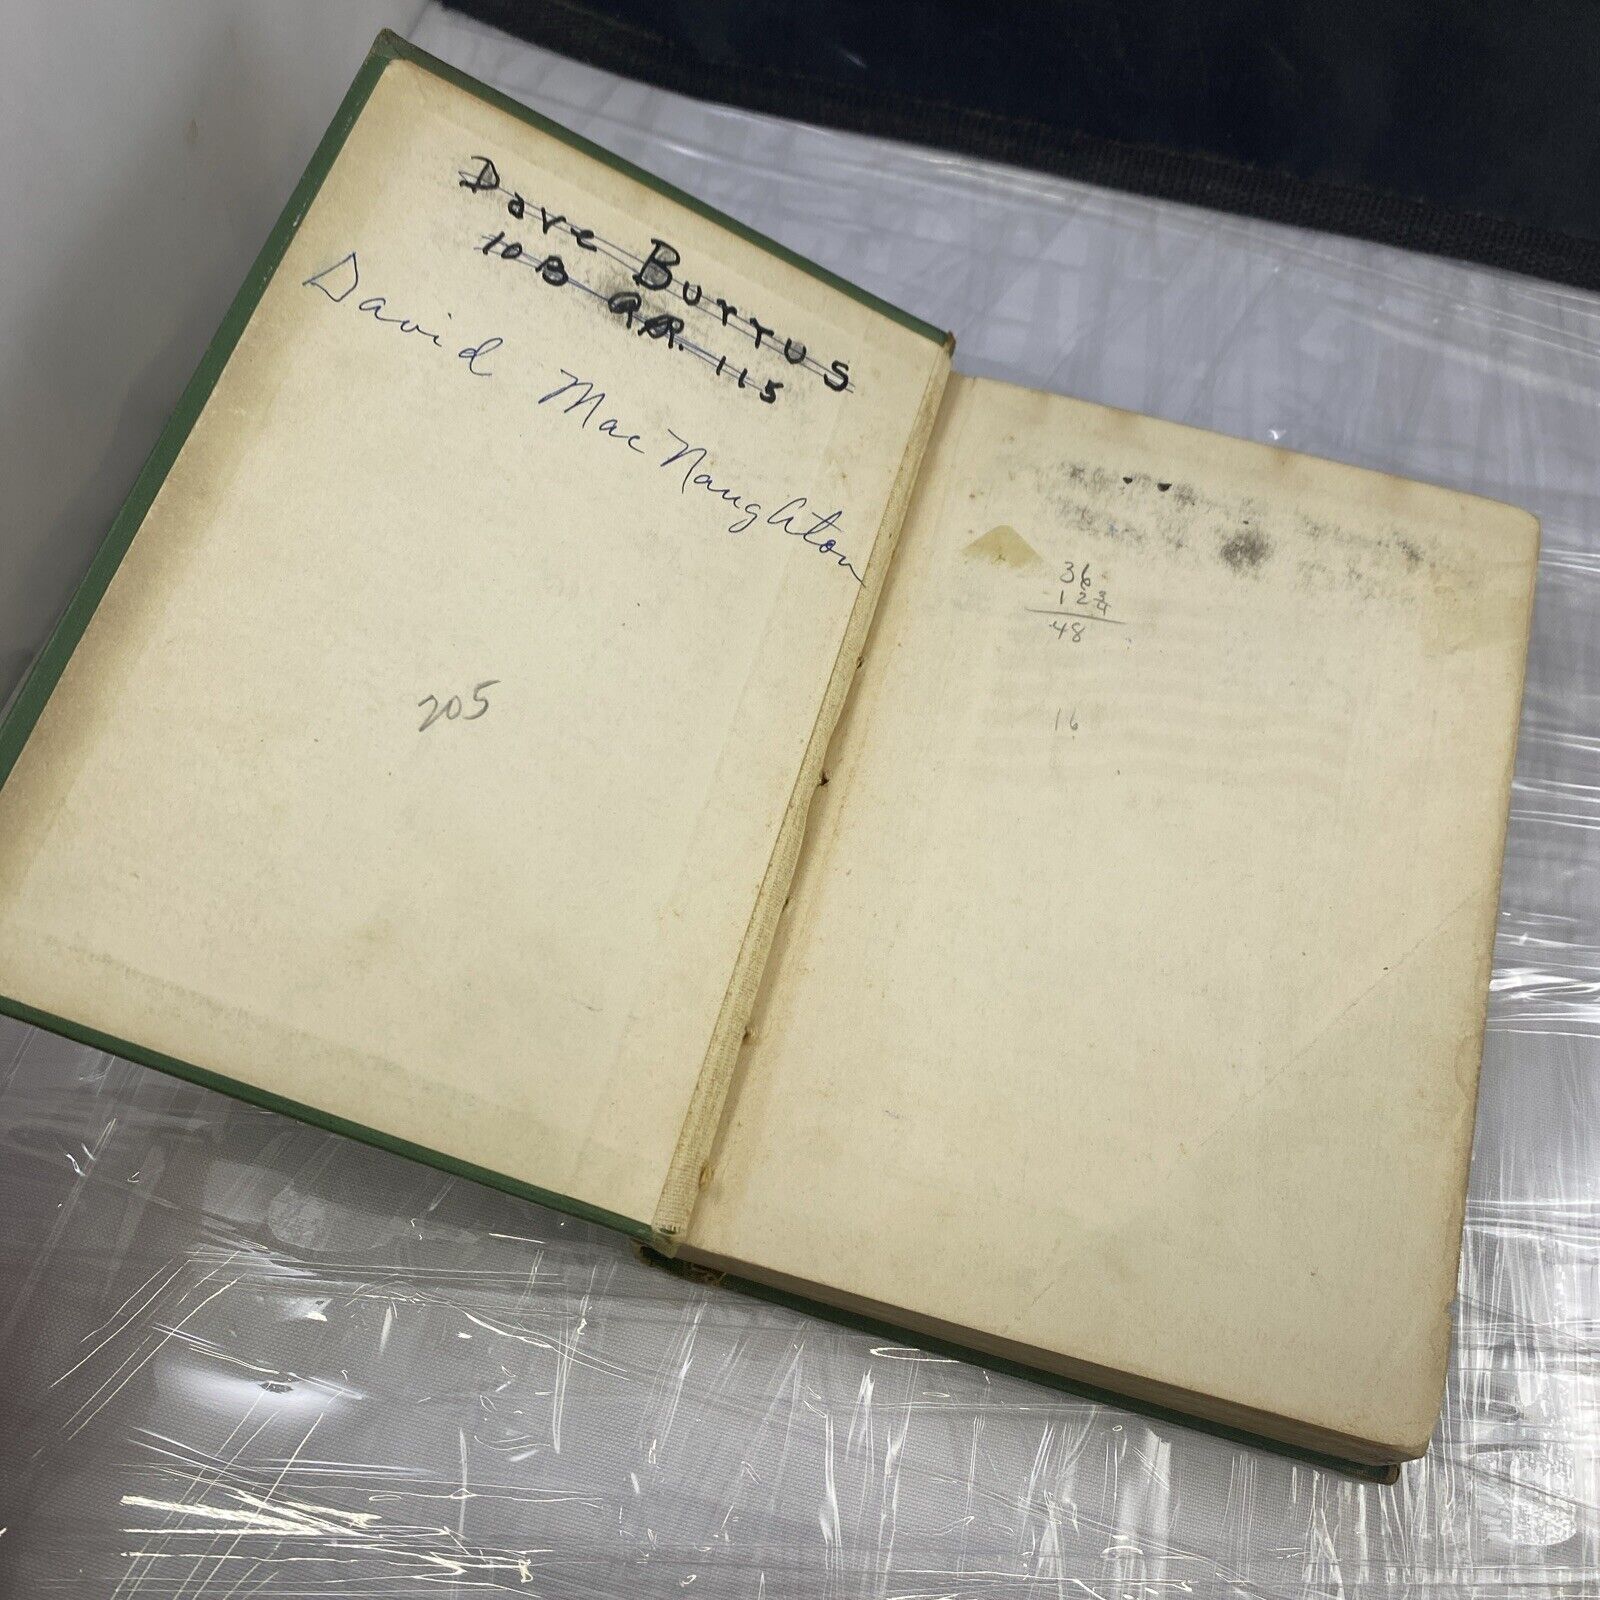 Dave Burrus
10B 115
David MacNaughton
205
36
12 3/4
48
16